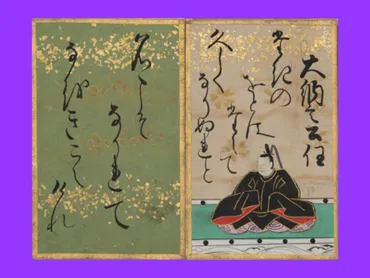 大納言公任
たきの
をとは
たえて
久しく
なりぬれと
名こそ
なかれて
なをきこえ
けれ